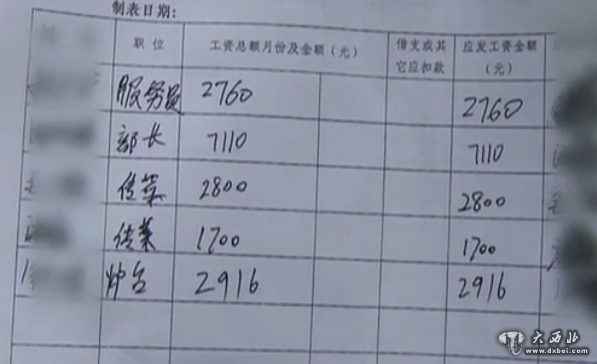 制表日期：
职位 工资总额月份及金额（元） 借支或其它应扣款 应发工资金额（元）
服务员 2760 2760
部长 7110 7110
传菜 2800 2800
传菜 1700 1700
炉台 2916 2916
大西北
www.dxbei.com